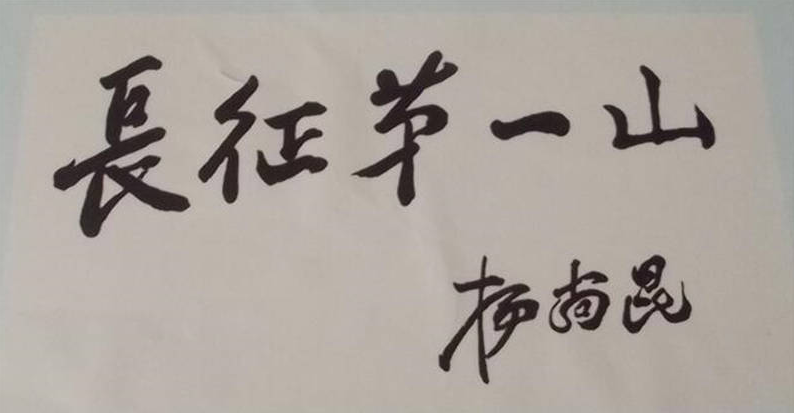 長征第一山
杨尚昆